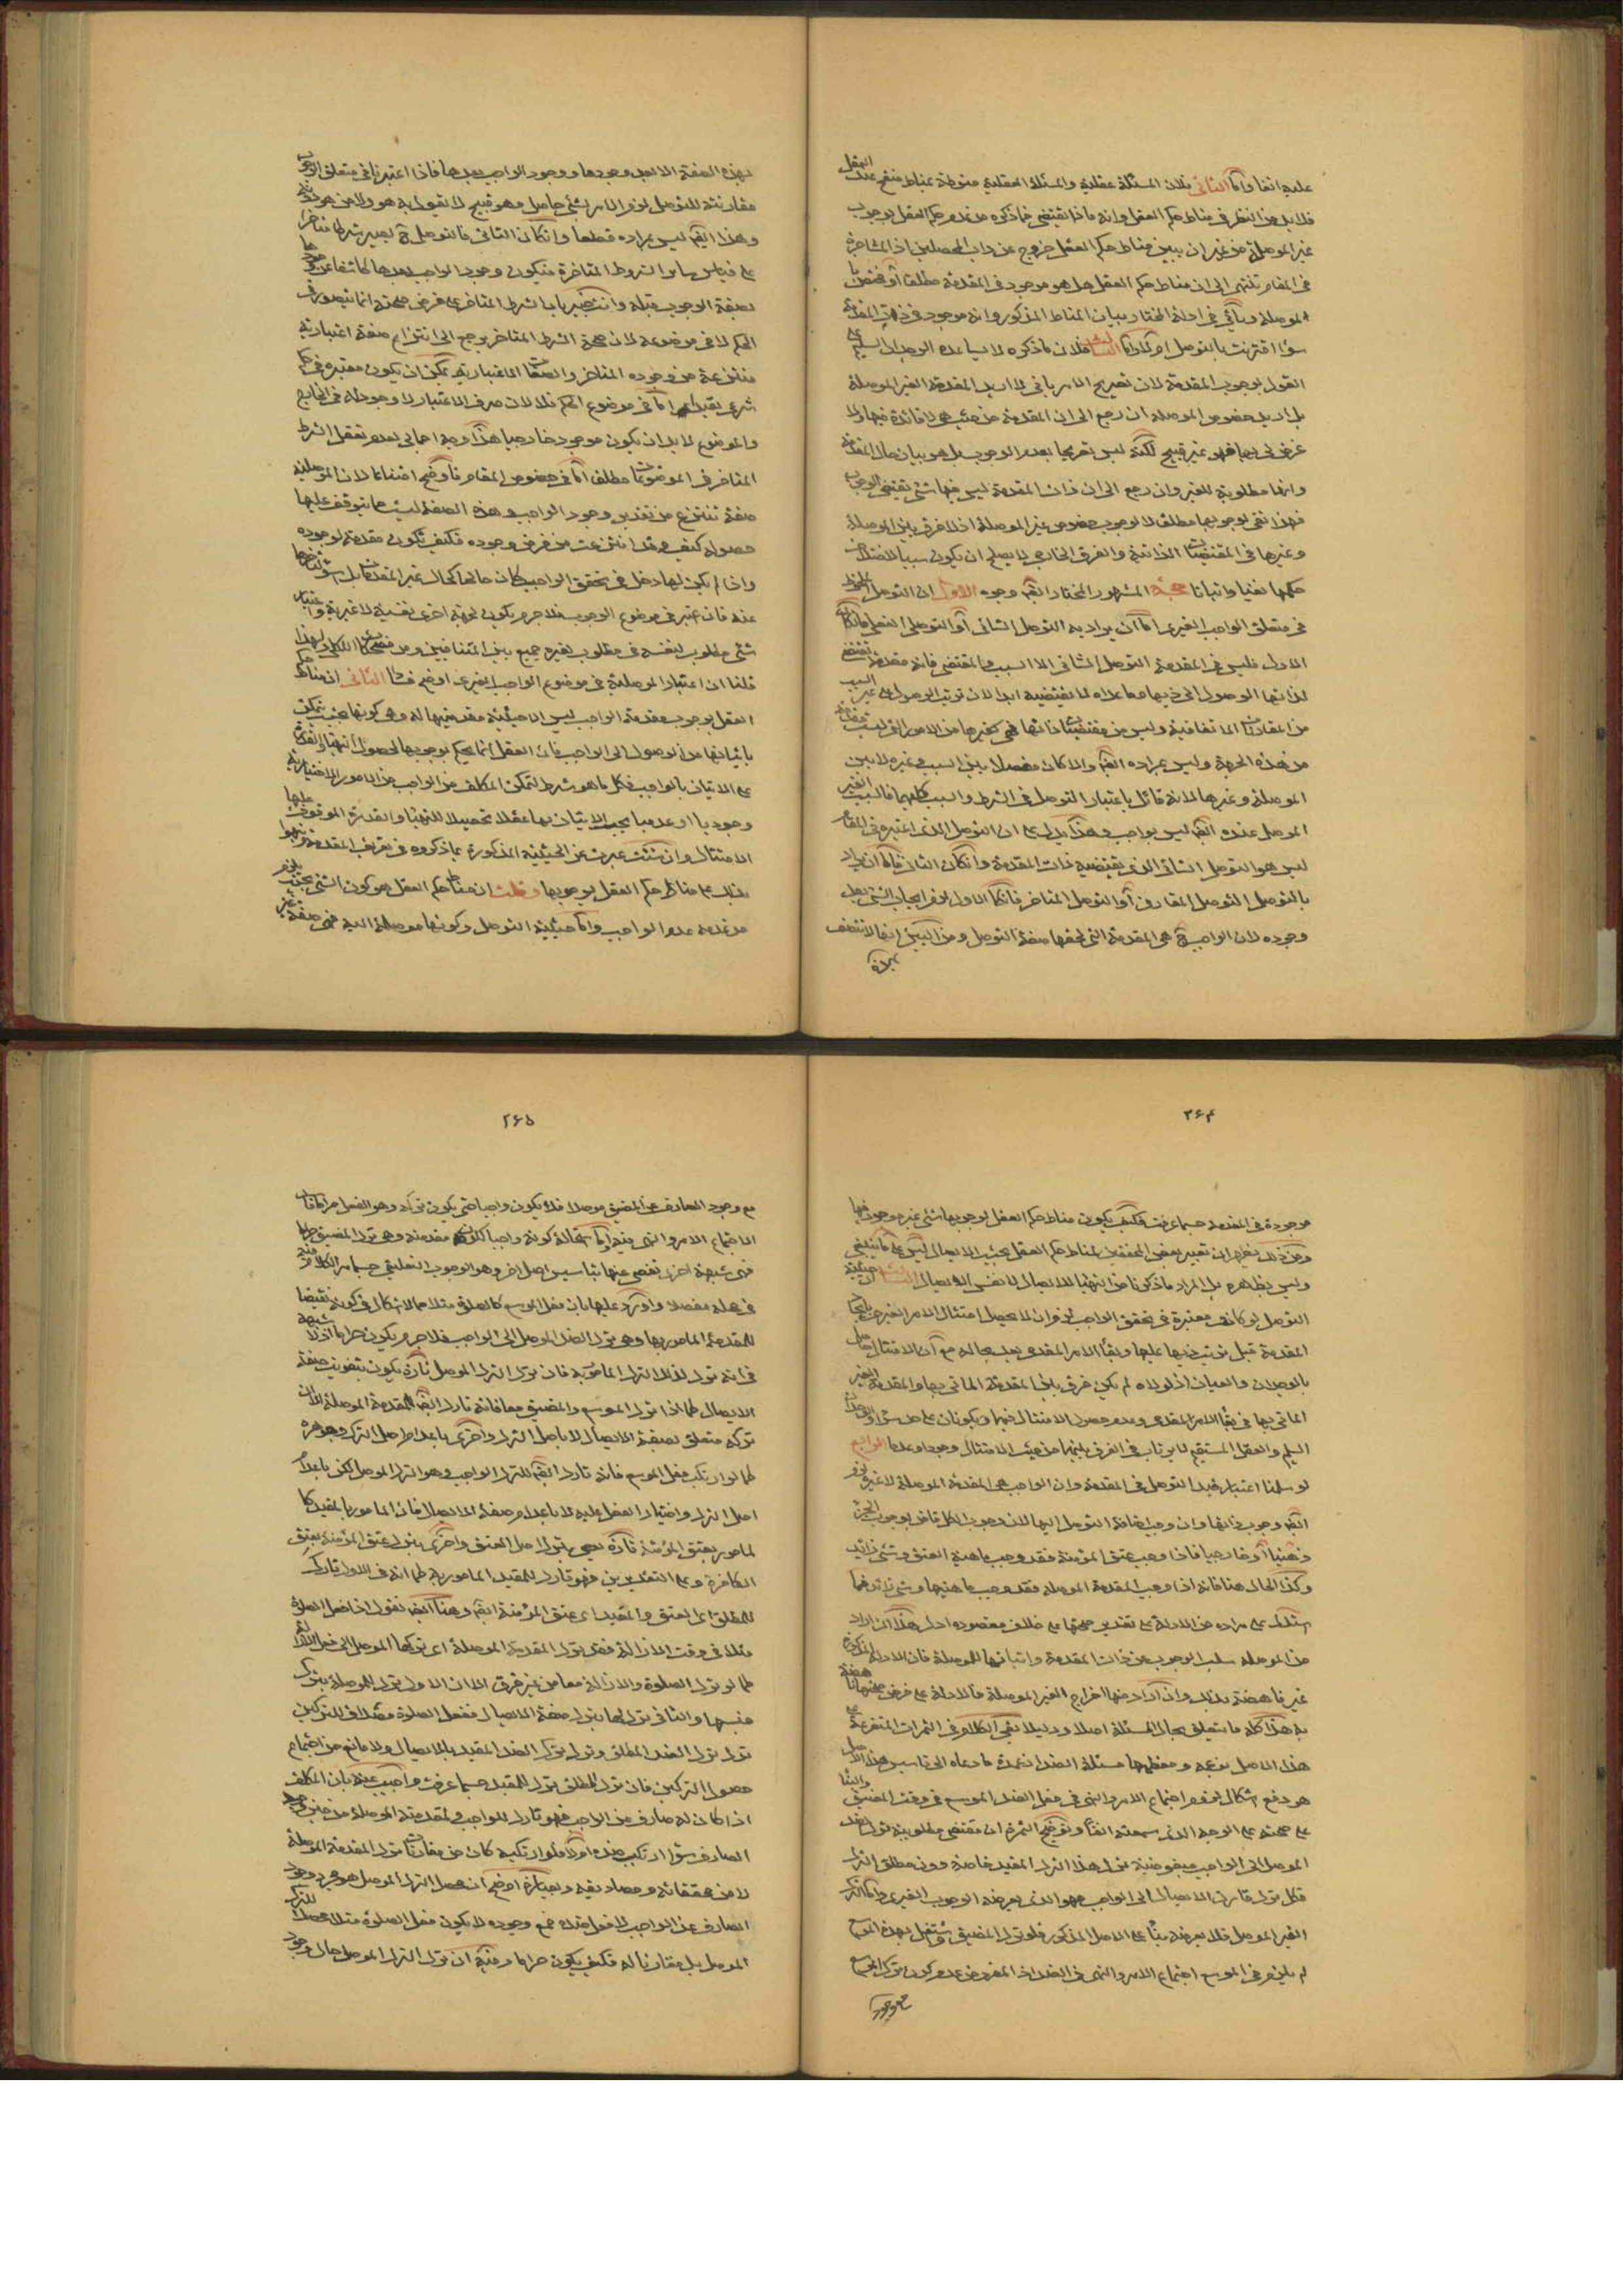 عليه انفا وأمّا الثاني فلان المسئلة عقلية والمسئلة العقلية منوطة بمناط منقح عند العقل
فلا بد من النظر في مناط حكم العقل وانه ماذا يقتضي فما ذكره من عدم حكم العقل بوجوب
غير الموصلة من غير ان يبين مناط حكم العقل خروج عن داب المحصلين اذ المشاجرة
في المقام تنتهى الى ان مناط حكم العقل هل هو موجود في المقدمة مطلقا أو مختص
بالموصلة ويأتي في ادلة المختار بيان المناط المذكور وانه موجود في ذات المقدمة
سواء اقترنت بالتوصل ام لا وأمّا الثالث فلان ما ذكره لا يساعده الوجدان السليم
القول بوجوب المقدمة لان تصريح الامر باني لا اريد المقدمة الغير الموصلة
بل اريد خصوص الموصلة ان رجع الى ان المقدمة من حيث هي لا فائدة فيها ولا
غرض لي بها فهو غير قبيح لكنّه ليس تصريحا بعدم الوجوب بل هو بيان حال المقدمة
وانها مطلوبة للغير وان رجع الى ان ذات المقدمة ليس فيها شئ يقتضي الوجوب
فهذا نفى لوجوبها مطلقا لا لوجوب خصوص غير الموصلة اذ لا فرق بين الموصلة
وغيرها في المقتضيات الذاتية والفرق الخارجي لا يصلح ان يكون سببا لاختلاف
حكمها نفيا واثباتا حجّة المشهور المختار ايضا وجوه الاول ان التوصل الملحوظ
في متعلق الواجب الغيرى امّا ان يراد به التوصل الشانى أو التوصل الفعلى فان كان
الاول فليس في المقدمة التوصل الشانى الا السبب والمقتضى فانه مقدمة تقتضى
لذاتها الوصول الى ذيها وما عداه لا يقتضيه ابدا لان ترتب الوصول على غير السبب
من المقارنات الاتفاقية وليس من مقتضيات ذاتها فهى كغيرها من الامور التى ليست مقدمة
من هذه الجهة وليس بمراده ايضا والا كان مفصلا بين السبب وغيره لا بين
الموصلة وغيرها لانه قائل باعتبار التوصل في الشرط والسبب كليهما فالسبب الغير
الموصل عنده ايضا ليس بواجب وهذا يدل على ان التوصل الذي اعتبره في المقام
ليس هو التوصل الشانى الذي يقتضيه ذات المقدمة وان كان الثانى فامّا ان يراد
بالتوصل التوصل المقارن أو التوصل المتاخر فان كان الاول لزم ايجاب الشئ بعد
وجوده لان الواجب ح هى المقدمة التي لحقها صفة التوصل ومن البيّن انها لا تتصف
بهذه
بهذه الصفة الا بعد وجودها ووجود الواجب بعدها فاذا اعتبرنا في متعلق الوجوب
مقارنته للتوصل لزم الامر بشئ حاصل وهو قبيح لا تقول به هو ولا من هو دونه
وهذا ايضا ليس بمراده قطعا وان كان الثانى فالتوصل ح يصير شرطا متاخرا
على قياس ساير الشروط المتاخرة فيكون وجود الواجب بعدها كاشفا عن
بصفة الوجوب قبله وانت خبير بان الشرط المتاخر على فرض صحته انما يتصور في
الحكم لا في موضوعه لان صحة الشرط المتاخر يرجع الى انتزاع صفة اعتبارية
منتزعة من وجوده المتاخر والصفات الاعتبارية يمكن ان يكون معتبرة في حكم
شرعى يقيد وامّا في موضوع الحكم فلا لان صرف الاعتبار لا وجود له في الخارج
والموضوع لا بد ان يكون موجودا خارجيا هذا وجه اجمالى بعدم تعقل الشرط
المتاخر في الموضوعات مطلقا امّا في خصوص المقام فاوضح امتناعا لان الموصلية
صفة تنتزع من تقدير وجود الواجب وهذه الصفة ليست مما يتوقف عليها
حصوله كيف وقد انتزعت من فرض وجوده فكيف تكون مقدمة لوجوده
واذا لم يكن لها دخل في تحقق الواجب كان حالها كحال غير المقدمات
عنه فان اعتبر في موضوع الوجوب فلا جرم يكون لجهة اخرى نفسية لا غيرية واعتبار
شئ مطلوب لنفسه في مطلوب لغيره جميع بين المتنافيين ولهذا
قلنا ان اعتبار الموصلية في موضوع الواجب الغيرى اوضح فسادا الثانى ان مناط حكم
العقل بوجوب مقدمة الواجب ليس الا حيثية مقدميتها له وهى كونها بحيث يتمكن
باتيانها من الوصول الى الواجب فان العقل انما يحكم بوجوبها لحصول التهيأ والقدرة
على الاتيان بالواجب فكل ما هو شرط لتمكن المكلف من الواجب من الامور الاختيارية
وجوديا او عدميا يجب الاتيان بها عقلا تحصيلا للتهيأ والقدرة الموقوف عليها
الامتثال وان شئت عبرت عن الحيثية المذكورة بما ذكروه في تعريف المقدمة
بذلك على مناط حكم العقل بوجوبها وقلت ان مناط حكم العقل هو كون الشئ بحيث يلزم
من عدمه عدم الواجب وامّا حيثية التوصل وكونها موصلة اليه فهى صفة غير
٢۶۴
موجودة في المقدمة حسبما عرفت فكيف يكون مناط حكم العقل بوجوبها شئ غير موجود فيها
ومن ذلك يظهر ان تعبير بعض المحققين لمناط حكم العقل بحيث الايصال ليس على ما ينبغى
وليس بظاهره بل المراد ما ذكرنا من التهيأ للايصال لا نفس الايصال الثالث ان حيثية
التوصل لو كانت معتبرة في تحقق الواجب لزم ان لا يحصل امتثال الامر الغيرى
المقدمة قبل ترتب ذيها عليها وبقاء الامر المقدمى بعد بحاله مع ان الامتثال حاصل
بالوجدان والعيان اذ لولاه لم يكن فرق بين المقدمة الماتى بها والمقدمة الغير
الماتى بها في بقاء الامر المقدمى وعدم حصول الامتثال فيهما ويكونان على حد سواء والوجدان
السليم والعقل المستقيم لا يرتاب في الفرق بينهما من حيث الامتثال وجودا وعدما الرابع
لو سلمنا اعتبار قيد التوصل في المقدمة وان الواجب هى المقدمة الموصلة لا غير لزم
ايضا وجوب ذاتها وان وجب اضافة التوصل اليها لان وجوب الكل قاض بوجوب الجزء
ذهنيا أو خارجيا فاذا وجب عتق المؤمنة فقد وجب ماهية العتق وشئ زائد
وكذا الحال هنا فانه اذا وجب المقدمة الموصلة فقد وجب ماهيتها وشئ زائد فما
استدل على مراده من الادلة على تقدير صحتها على خلاف مقصوده ادل هذا ان اراد
من الموصلة سلب الوجوب عن ذات المقدمة واثباتها للموصلة فان الادلة المذكورة
غير ناهضة بذلك وان اراد منها اخراج الغير الموصلة فالادلة على فرض صحتها ناهضة
به هذا كله ما يتعلق بحال المسئلة اصلا ودليلا بقى الكلام في الثمرات المتفرعة على
هذا الاصل بزعمه ومعظمها مسئلة الضد اذ عمدة ما دعاه الى تاسيس هذا الاصل
هو دفع اشكال لزوم اجتماع الامر والنهى في فعل الضد الموسع في وقت المضيق
على صحته على الوجه الذي سمعته انفا وتوضيح الثمرة ان مقتضى مطلوبية ترك الضد
الموصل الى الواجب مبغوضية ترك هذا الترك المقيد خاصة دون مطلق الترك
فكل ترك قارن الايصال الى الواجب فهو الذي يعرضه الوجوب الغيرى وامّا الترك
الغير الموصل فلا يعرضه بناء على الاصل المذكور فلو ترك المضيق واشتغل بهذه الموسع
لم يلزم في الموسع اجتماع الامر والنهى في الضد اذ المفروض عدم كون ترك الموسع
مع وجود
٢۶۵
مع وجود الصارف عن المضيق موصلا فلا يكون واجبا حتى يكون تركه وهو الفعل حراما
الاجتماع الامر والنهى فيه وامّا استحالة كونه واجبا لكون مقدمته وهى ترك المضيق حراما
فهى شبهة اخرى تفصى عنها بتاسيس اصل اخر وهو الوجوب التعليقى حسبما مر الكلام فيه
في محله مفصلا واورد عليها بان فعل الموسع كالصلوة مثلا مما لا اشكال في كونه نقيضا
للمقدمة المامور بها وهى ترك الضد الموصل الى الواجب فلا جرم يكون حراما اذ لا شبهة
في انه ترك لذلك الترك المامور به فان ترك الترك الموصل تارة يكون بتفويت صفة
الايصال كما اذا ترك الموسع والمضيق معا فانه تارك ايضا للمقدمة الموصلة الا ان
تركه متعلق بصفة الايصال لا باصل الترك واخرى باعدام اصل الترك وجوهره
كما لو ارتكب فعل الموسع فانه تارك ايضا للترك الواجب وهو الترك الموصل لكن باعدام
اصل الترك واختيار الفعل عليه لا باعدام صفة الايصال فان المامور بالمقيد كا
لمامور بعتق المؤمنة تارة يعصى بترك اصل العتق واخرى بترك عتق المؤمنة بعتق
الكافرة وعلى التقديرين فهو تارك للمقيد المامور به كما انه في الاول تارك
للمطلق اى العتق والمقيد اى عتق المؤمنة ايضا وهنا ايضا نقول اذا فعل الصلوة
مثلا في وقت الازالة فقد ترك المقدمة الموصلة اى تركها الموصل الى فعل الازالة
كما لو ترك الصلوة والازالة معا من غير فرق الا ان الاول ترك للموصلة بترك
جنسها والثانى ترك لها بترك صفة الايصال ففعل الصلوة مصداق للتركين
ترك ترك الضد المطلق وترك ترك الضد المقيد بالايصال ولا مانع من اجتماع
حصول التركين فان ترك المطلق ترك للمقيد حسبما عرفت واجيب عنه بان المكلف
اذا كان له صارف عن الواجب فهو تارك للواجب ولمقدمته الموصلة من حين وجود
الصارف سواء ارتكب ضده اولا فلو ارتكبه كان من مقارنات ترك المقدمة الموصلة
لا من محققاته ومصاديقه وبعبارة اوضح ان معدم الترك الموصل هو مجرد وجود
الصارف عن الواجب لا فعل ضده فمع وجوده لا يكون فعل الصلوة مثلا معدما للترك
الموصل بل مقارنا له فكيف يكون حراما وفيه ان ترك الترك الموصل حال وجود